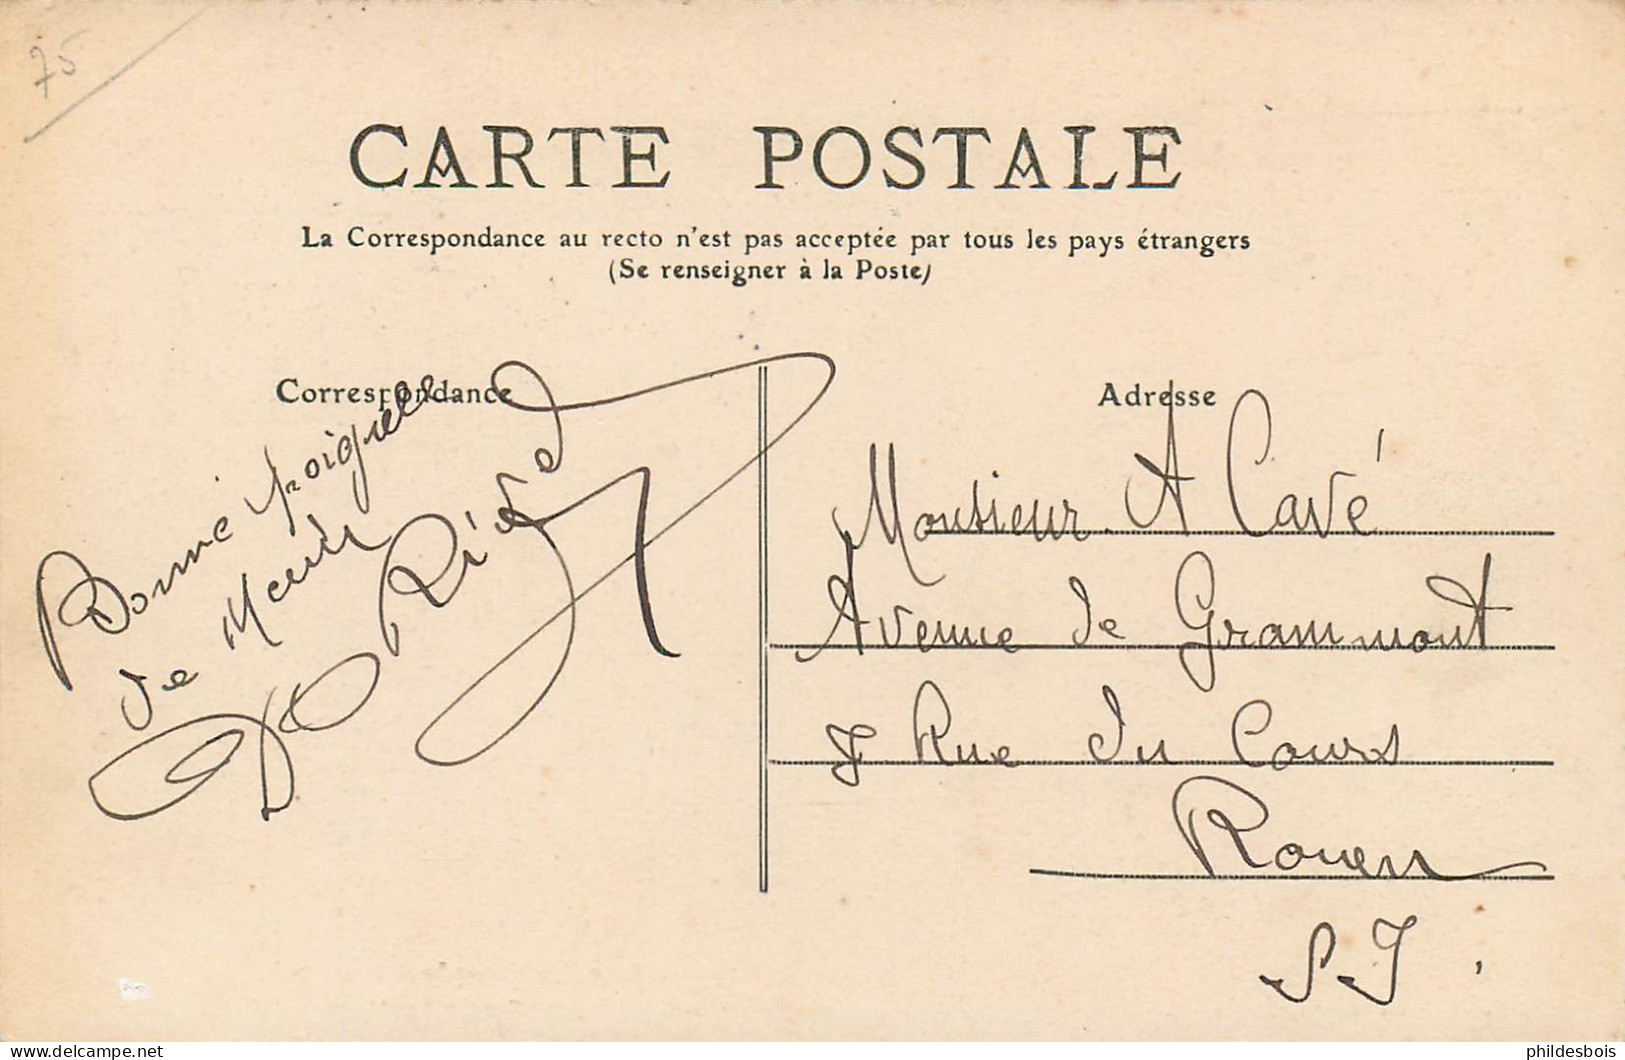 75
CARTE POSTALE
La Correspondance au recto n'est pas acceptée par tous les pays étrangers
(Se renseigner à la Poste)
Correspondance
Adresse
Bonne poignée
de Main
Monsieur A Cavé
Avenue de Grammont
7 Rue du Cours
Rouen
S I
phildesbois